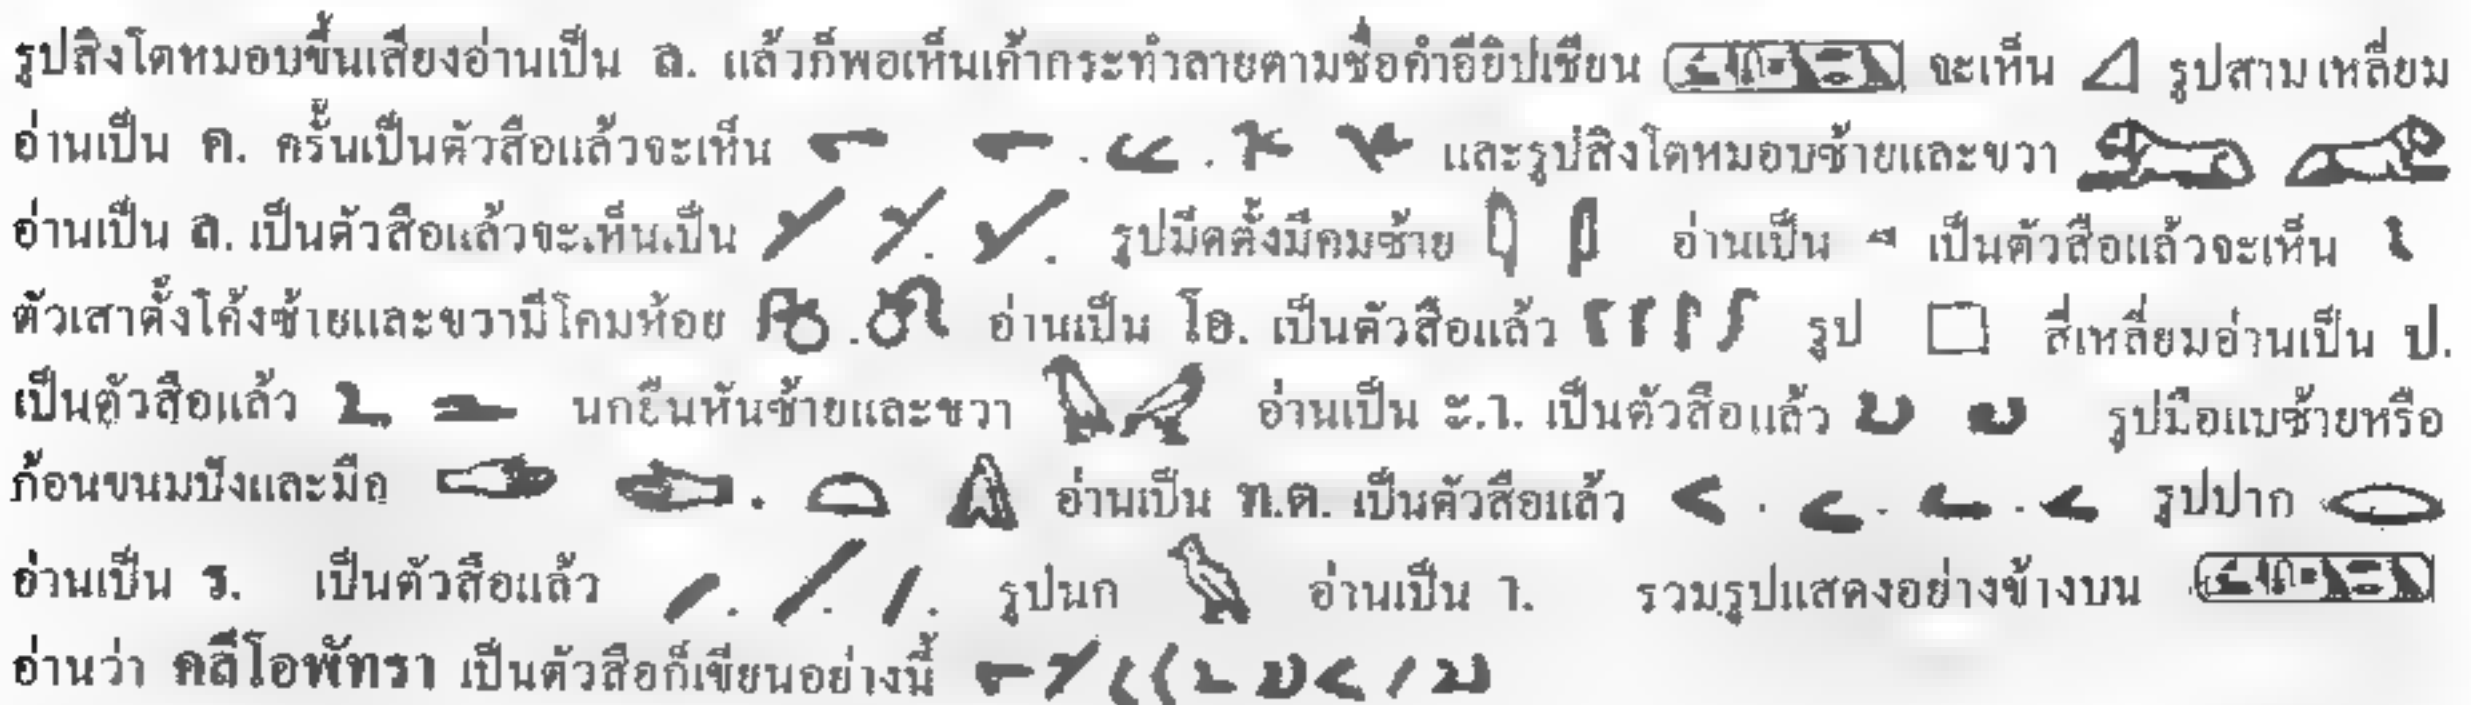 รูปสิงโตหมอบขึ้นเสียงอ่านเป็น ล. แล้วก็พอเห็นเค้ากระทำลายตามชื่อคำอียิปเชียน จะเห็น รูปสามเหลี่ยม
อ่านเป็น ค. ครั้นเป็นตัวสือแล้วจะเห็น และรูปสิงโตหมอบซ้ายและขวา
อ่านเป็น ล. เป็นตัวสือแล้วจะเห็นเป็น รูปมีดตั้งมีคมซ้าย อ่านเป็น เป็นตัวสือแล้วจะเห็น
ตัวเสาตั้งโค้งซ้ายและขวามีโคมห้อย อ่านเป็น โอ. เป็นตัวสือแล้ว รูป สี่เหลี่ยมอ่านเป็น ป.
เป็นตัวสือแล้ว นกยืนหันซ้ายและขวา อ่านเป็น ะ.า. เป็นตัวสือแล้ว รูปมือแบซ้ายหรือ
ก้อนขนมปังและมือ อ่านเป็น ท.ต. เป็นตัวสือแล้ว รูปปาก
อ่านเป็น ร. เป็นตัวสือแล้ว รูปนก อ่านเป็น า. รวมรูปแสดงอย่างข้างบน
อ่านว่า คลีโอพัทรา เป็นตัวสือก็เขียนอย่างนี้